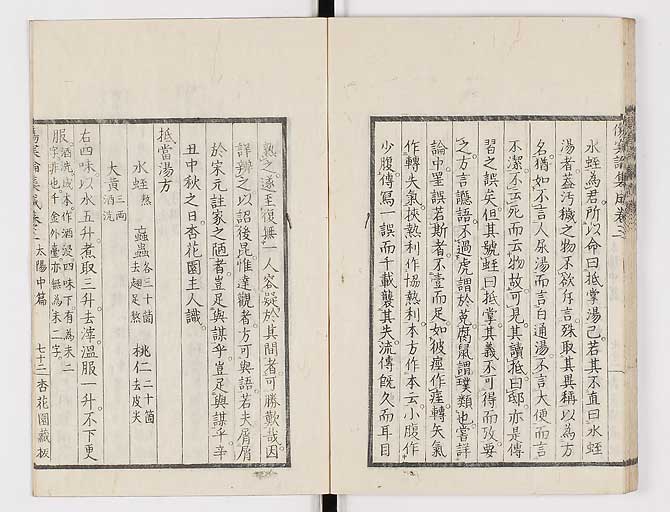 傷寒論集成卷三
水蛭為君所以命曰抵掌湯已若其不直曰水蛭
湯者葢汚穢之物不欲斥言殊取其異稱以為方
名猶如不言人尿湯而言白通湯不言大便而言
不潔不云死而云物故可見其讀抵曰邸亦是傳
習之誤矣但其號蛭曰抵掌其義不可得而攷要
之方言讔語不過虎謂於菟腐鼠謂璞類也嘗詳
論中罜誤若斯者不壹而足如彼痙作痓轉矢氣
作轉失氣挾熱利本方作協熱利本方作本云小腹作
少腹傳寫一誤而千載襲其失流傳旣久而耳目
熟之遂至復無一人容疑於其間者可勝歎哉因
詳辨之以詔後昆惟達觀者方可與語若夫屑屑
於宋元註家之陋者豈足與謀乎豈足與謀乎辛
丑中秋之日杏花園主人識
抵當湯方
水蛭熬 䖟蟲各三十箇去翅足熬 桃仁二十箇去皮尖
大黃三兩酒洗
右四味以水五升煮取三升去滓溫服一升不下更
服酒洗成本作酒浸四味下有為末二字非也千金外臺亦無為末二字
傷寒論集成卷三 太陽中篇 七十二 杏花園藏板